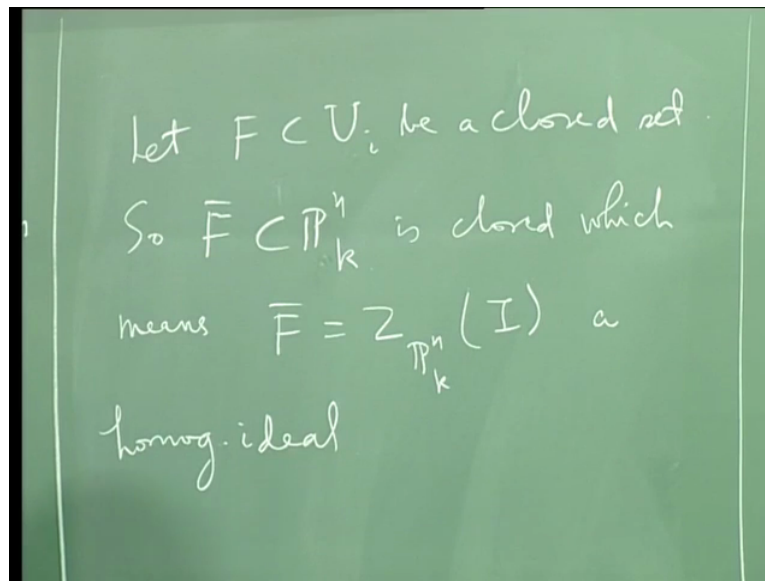 Let F ⊂ U_i be a closed set.
So F̅ ⊂ ℙ^n_k is closed which
means F̅ = Z_{ℙ^n_k}(I) a
homog. ideal